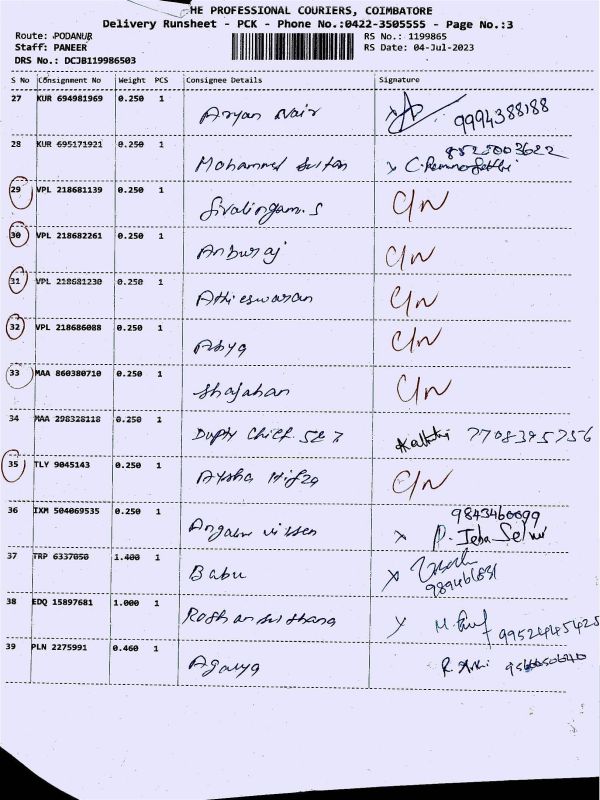 HE PROFESSIONAL COURIERS, COIMBATORE
Delivery Runsheet - PCK - Phone No.:0422-3505555 - Page No.:3
Route: PODANUR
RS No.: 1199865
Staff: PANEER
RS Date: 04-Jul-2023
DRS No.: DCJB119986503
S No Consignment No Weight PCS Consignee Details Signature
27 KUR 694981969 0.250 1 Aryan Nair 9994388188
28 KUR 695171921 0.250 1 Mohammed Sultan x
29 VPL 218681139 0.250 1 Sivalingam.S C/N
30 VPL 218682261 0.250 1 Anburaj C/N
31 VPL 218681230 0.250 1 Athieswaran C/N
32 VPL 218686088 0.250 1 C/N
33 MAA 860380710 0.250 1 Shajahan C/N
34 MAA 298328118 0.250 1 Dupty Chief. SE 7708395756
35 TLY 9045143 0.250 1 Aysha Hifza C/N
36 IXM 504069535 0.250 1 x 9843460099
P. Jeba Selvi
37 TRP 6337050 1.400 1 Babu x
38 EDQ 15897681 1.000 1 9952445425
39 PLN 2275991 0.460 1